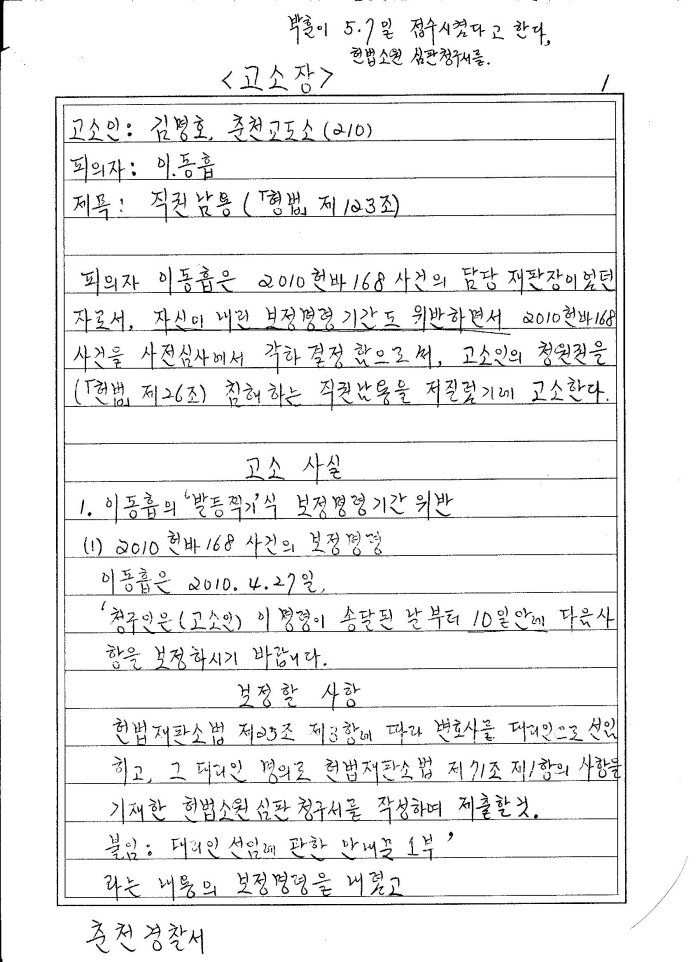 박훈이 5.7일 접수시켰다고 한다,
헌법소원 심판청구서를.
<고소장>
1
고소인: 김명호, 춘천교도소(210)
피의자: 이동흡
제목: 직권남용(「형법」제123조)
피의자 이동흡은 2010헌바168사건의 담당 재판장이었던
자로서, 자신이 내린 보정명령기간도 위반하면서 2010헌바168
사건을 사전심사에서 각하결정함으로써, 고소인의 청원권을
(「헌법」제26조) 침해하는 직권남용을 저질렀기에 고소한다.
고소 사실
1. 이동흡의 '발등찍기'식 보정명령기간 위반
(1) 2010헌바168사건의 보정명령
이동흡은 2010.4.27일,
'청구인은(고소인) 이 명령이 송달된 날부터 10일안에 다음사
항을 보정하시기 바랍니다.
보정할 사항
헌법재판소법 제25조 제3항에 따라 변호사를 대리인으로 선임
하고, 그 대리인 명의로 헌법재판소법 제71조 제1항의 사항을
기재한 헌법소원심판청구서를 작성하여 제출할것.
붙임: 대리인선임에 관한 안내문 1부'
라는 내용의 보정명령을 내렸고
춘천경찰서